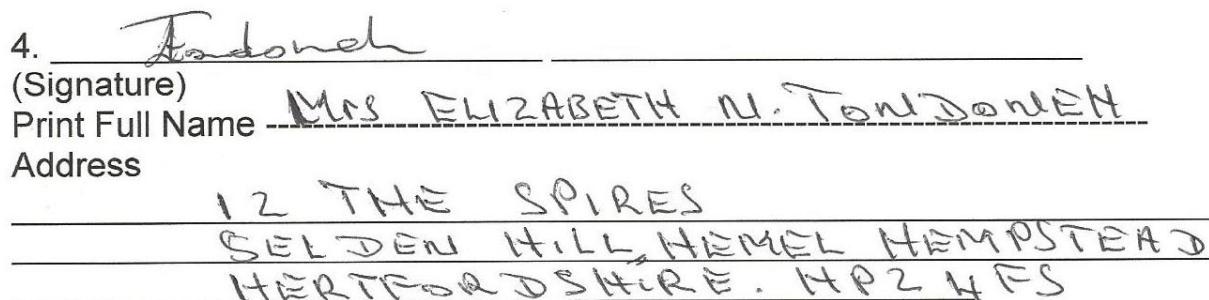 4. Tondoneh
(Signature)
Print Full Name Mrs ELIZABETH N. TONDONEH
Address
12 THE SPIRES
SELDEN HILL, HEMEL HEMPSTEAD
HERTFORDSHIRE. HP2 4FS